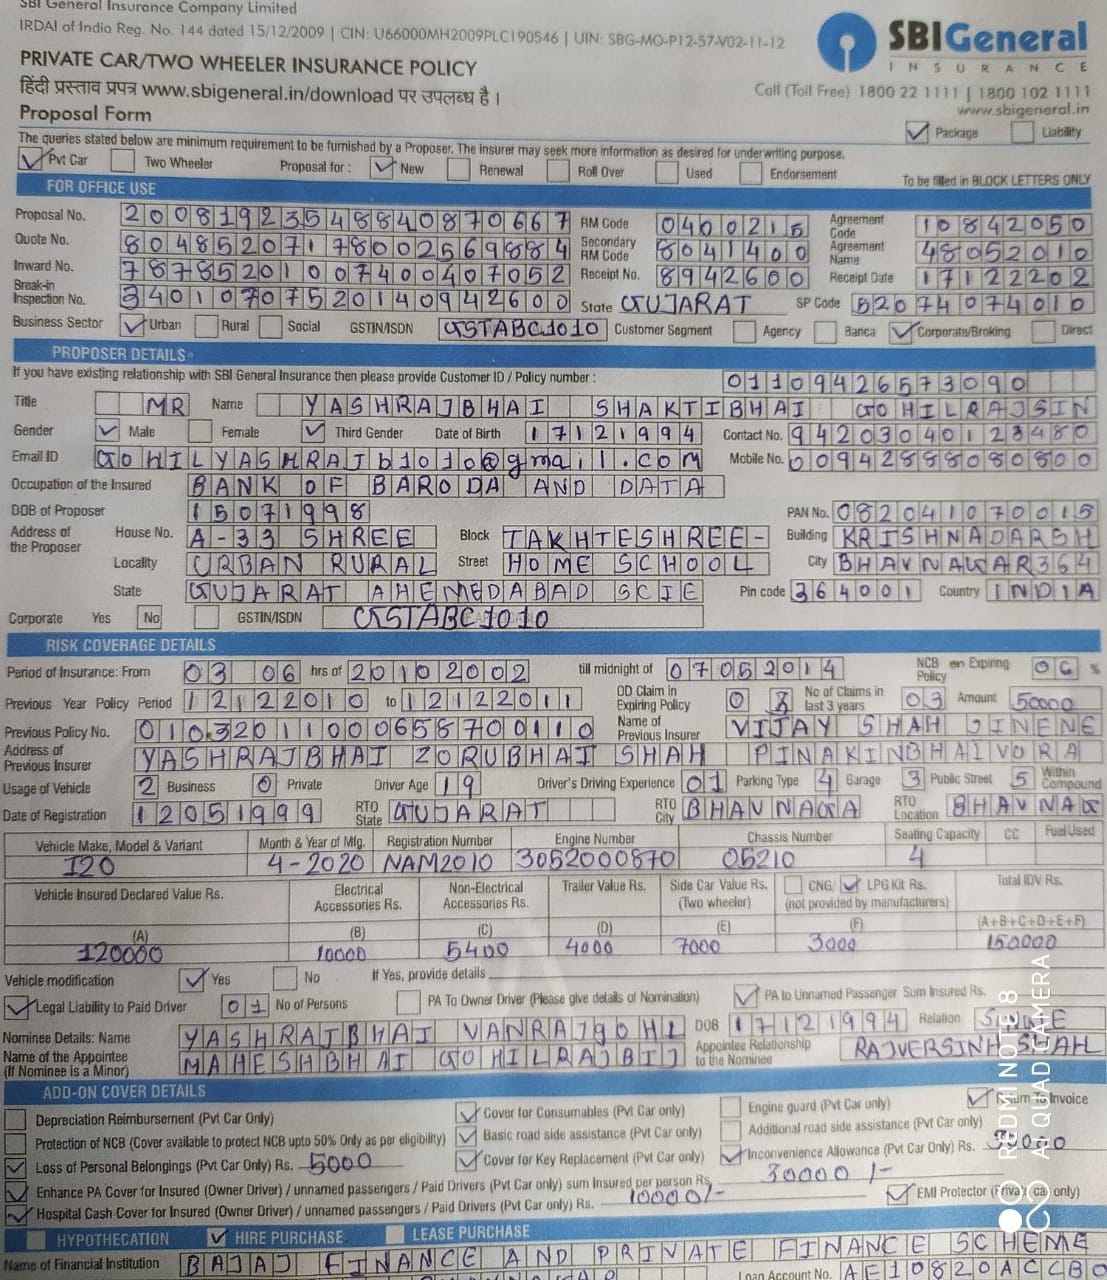 SBI General Insurance Company Limited
IRDAI of India Reg. No. 144 dated 15/12/2009 | CIN: U66000MH2009PLC190546 | UIN: SBG-MO-P12-57-V02-11-12
SBIGeneral
INSURANCE
PRIVATE CAR/TWO WHEELER INSURANCE POLICY
हिंदी प्रस्ताव प्रपत्र www.sbigeneral.in/download पर उपलब्ध है ।
Call (Toll Free) 1800 22 1111 | 1800 102 1111
www.sbigeneral.in
Proposal Form
Package Liability
The queries stated below are minimum requirement to be furnished by a Proposer. The insurer may seek more information as desired for underwriting purpose.
Pvt Car Two Wheeler Proposal for : New Renewal Roll Over Used Endorsement To be filled in BLOCK LETTERS ONLY
FOR OFFICE USE
Proposal No. 20081923548840870667 RM Code 0400215 Agreement Code 10842050
Quote No. 80485207178002569884 Secondary RM Code 8041400 Agreement Name 48052010
Inward No. 78785201007400407052 Receipt No. 8942600 Receipt Date 17122202
Break-in Inspection No. 34010707520140942600 State GUJARAT SP Code 82074074010
Business Sector Urban Rural Social GSTIN/ISDN GSTABC1010 Customer Segment Agency Banca Corporate/Broking Direct
PROPOSER DETAILS
If you have existing relationship with SBI General Insurance then please provide Customer ID / Policy number : 01109426573090
Title MR Name YASHRAJBHAI SHAKTIBHAI GOHILRAJSIN
Gender Male Female Third Gender Date of Birth 17121994 Contact No. 94203040123480
Email ID GOHILYASHRAJb1010@gmail.com Mobile No. 00942888080800
Occupation of the Insured BANK OF BARODA AND DATA
DOB of Proposer 15071998 PAN No. 082041070015
Address of the Proposer House No. A-33 SHREE Block TAKHTESHREE- Building KRISHNADARSH
Locality URBAN RURAL Street HOME SCHOOL City BHAVNAGAR364
State GUJARAT AHEMEDABAD SCIE Pin code 364001 Country INDIA
Corporate Yes No GSTIN/ISDN GSTABC1010
RISK COVERAGE DETAILS
Period of Insurance: From 03 06 hrs of 20102002 till midnight of 07052014 NCB on Expiring Policy 06 %
Previous Year Policy Period 12122010 to 12122011 OD Claim in Expiring Policy 0 No of Claims in last 3 years 03 Amount 50000
Previous Policy No. 01032011000658700110 Name of Previous Insurer VIJAY SHAH JINENE
Address of Previous Insurer YASHRAJBHAI ZORUBHAI SHAH PINAKINBHAIVORA
Usage of Vehicle 2 Business 0 Private Driver Age 19 Driver's Driving Experience 01 Parking Type 4 Garage 3 Public Street 5 Within Compound
Date of Registration 12051999 RTO State GUJARAT RTO City BHAVNAGA RTO Location BHAVNAG
Vehicle Make, Model & Variant Month & Year of Mfg. Registration Number Engine Number Chassis Number Seating Capacity CC Fuel Used
I20 4-2020 NAM2010 3052000870 05210 4
Vehicle Insured Declared Value Rs. Electrical Accessories Rs. Non-Electrical Accessories Rs. Trailer Value Rs. Side Car Value Rs. (Two wheeler) CNG/ LPG Kit Rs. (not provided by manufacturers) Total IDV Rs.
(A) (B) (C) (D) (E) (F) (A+B+C+D+E+F)
120000 10000 5400 4000 7000 3000 150000
Vehicle modification Yes No If Yes, provide details
Legal Liability to Paid Driver 01 No of Persons PA To Owner Driver (Please give details of Nomination) PA to Unnamed Passenger Sum Insured Rs.
Nominee Details: Name YASHRAJBHAI VANRAJGOHL DOB 17121994 Relation
Name of the Appointee (If Nominee is a Minor) MAHESHBHAI GOHILRAJBIJ Appointee Relationship to the Nominee RAJVERSINH SHAH
ADD-ON COVER DETAILS
Depreciation Reimbursement (Pvt Car Only) Cover for Consumables (Pvt Car only) Engine guard (Pvt Car only) Return To Invoice
Protection of NCB (Cover available to protect NCB upto 50% Only as per eligibility) Basic road side assistance (Pvt Car only) Additional road side assistance (Pvt Car only)
Loss of Personal Belongings (Pvt Car Only) Rs. 5000 Cover for Key Replacement (Pvt Car only) Inconvenience Allowance (Pvt Car Only) Rs. 30000
Enhance PA Cover for Insured (Owner Driver) / unnamed passengers / Paid Drivers (Pvt Car only) sum Insured per person Rs. 30000/-
Hospital Cash Cover for Insured (Owner Driver) / unnamed passengers / Paid Drivers (Pvt Car only) Rs. 10000/- EMI Protector (Private car only)
HYPOTHECATION HIRE PURCHASE LEASE PURCHASE
Name of Financial Institution BAJAJ FINANCE AND PRIVATE FINANCE SCHEME
Loan Account No. AE10820ACCBO
REDMI NOTE 8
AI QUAD CAMERA